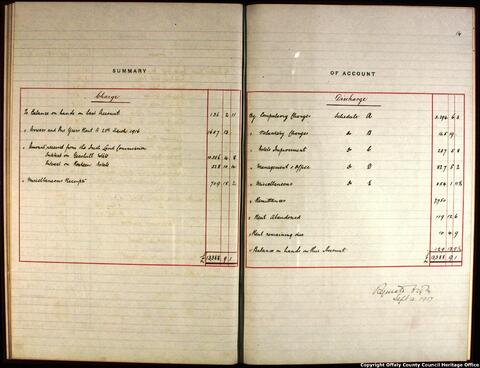 14
SUMMARY
OF ACCOUNT
Charge
To Balance on hands on last Account 136 2 11
" Arrears and One Years Rent to 25th March 1916 1607 13
" Amount received from the Irish Land Commission
Interest on Geashill Estate 10,206 4 8
Interest on
" Miscellaneous Receipts 709 15 2
£ 13388 9 1
Discharge
By Compulsory Charges Schedule A
" Voluntary Charges do B
" Estate Improvement do C
" Management & Office do D 827 5 2
" Miscellaneous do E
" Remittances 7750
" Rent Abandoned 119 12 6
" Rent remaining due 10 4 9
" Balance on hands on this Account
£ 13388 9 1
Sept 12 1917
Copyright Offaly County Council Heritage Office